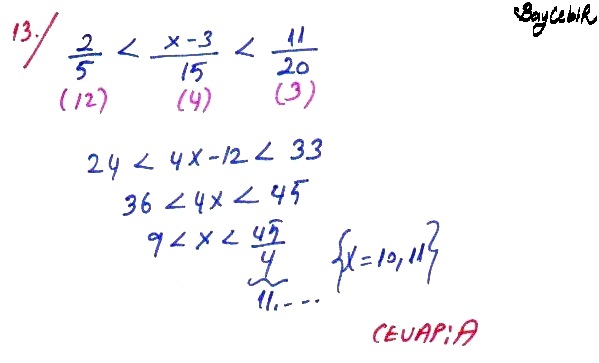 BayCebiR
13. 2/5 < x-3/15 < 11/20
(12) (4) (3)
24 < 4x-12 < 33
36 < 4x < 45
9 < x < 45/4
11,....
{x=10,11}
CEVAP: A